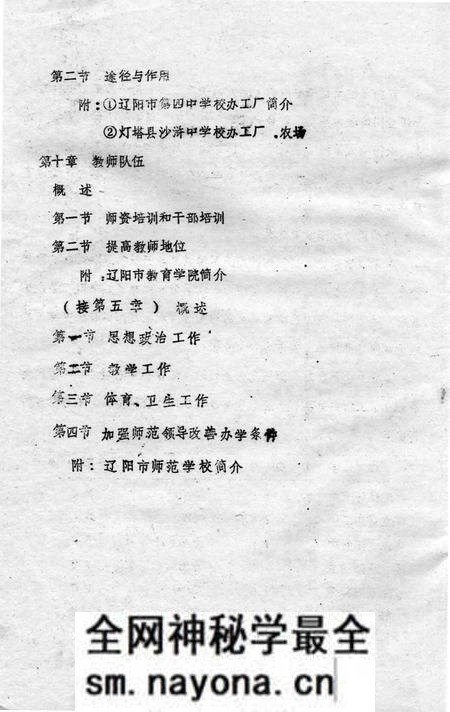 第二节 途径与作用
附:①辽阳市第四中学校办工厂简介
②灯塔县沙浒中学校办工厂、农场
第十章 教师队伍
概述
第一节 师资培训和干部培训
第二节 提高教师地位
附:辽阳市教育学院简介
(接第五章) 概述
第一节 思想政治工作
第二节 教学工作
第三节 体育、卫生工作
第四节 加强师范领导改善办学条件
附:辽阳市师范学校简介
全网神秘学最全
sm.nayona.cn